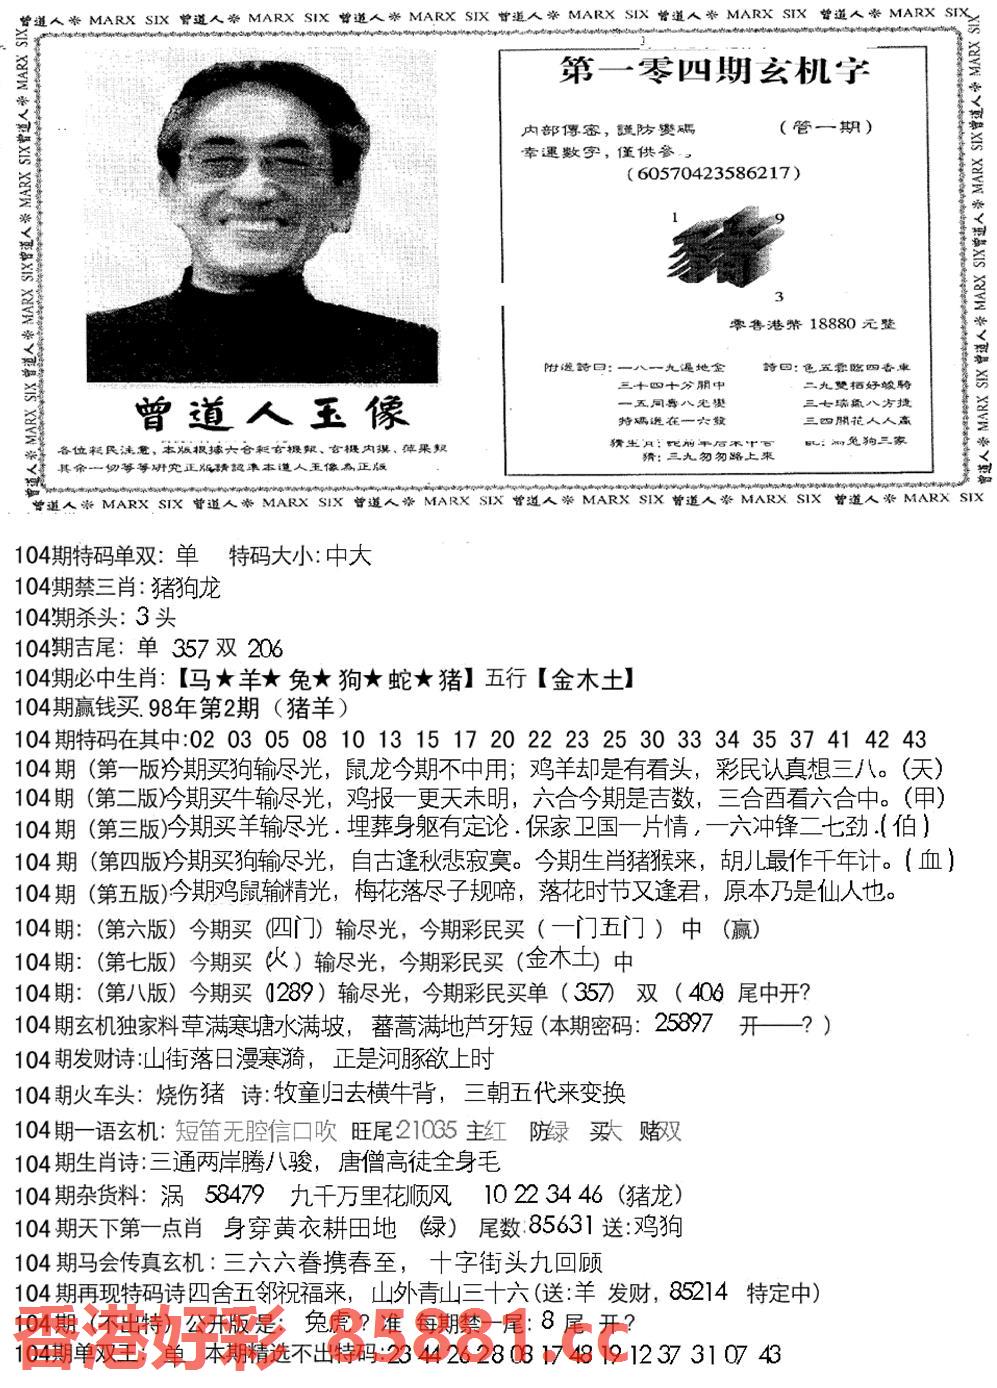 曾道人❊ MARX SIX 曾道人❊ MARX SIX 曾道人❊ MARX SIX 曾道人❊ MARX SIX 曾道人❊ MARX SIX 曾道人❊ MARX SIX
第一零四期玄机字
內部傳密，謹防變碼
（管一期）
幸運数字，僅供參
(60570423586217)
1
9
猪
3
零售港幣 18880 元整
附送詩曰：一八一九遍地金
三十四十分開中
特碼送在一六發
詩曰：色五雲臨四香車
二九雙栖好峻騎
三七瑞氣八方捷
三四開花人人贏
猜：三九匆匆路上來
曾道人玉像
各位彩民注意，本版根據六合彩玄機報、玄機內摸、蘋果報
其余一切等等研究正版請認準本道人玉像為正版
曾道人❊ MARX SIX 曾道人❊ MARX SIX 曾道人❊ MARX SIX 曾道人❊ MARX SIX 曾道人❊ MARX SIX 曾道人❊ MARX SIX
104期特码单双：单 特码大小:中大
104期禁三肖:猪狗龙
104期杀头：3头
104期吉尾：单 357 双 206
104期必中生肖:【马★羊★兔★狗★蛇★猪】五行【金木土】
104期赢钱买.98年第2期（猪羊）
104期特码在其中:02 03 05 08 10 13 15 17 20 22 23 25 30 33 34 35 37 41 42 43
104期（第一版)今期买狗输尽光，鼠龙今期不中用；鸡羊却是有看头，彩民认真想三八。（天）
104期（第二版)今期买牛输尽光，鸡报一更天未明，六合今期是吉数，三合酉看六合中。（甲）
104期（第三版)今期买羊输尽光.埋葬身躯有定论.保家卫国一片情,一六冲锋二七劲.(伯)
104期（第四版)今期买狗输尽光，自古逢秋悲寂寞。今期生肖猪猴来，胡儿最作千年计。(血)
104期（第五版)今期鸡鼠输精光，梅花落尽子规啼，落花时节又逢君，原本乃是仙人也。
104期：（第六版）今期买（四门）输尽光，今期彩民买（一门五门）中（赢）
104期：（第七版）今期买（火）输尽光，今期彩民买（金木土）中
104期：（第八版）今期买（1289）输尽光，今期彩民买单（357） 双（406 尾中开?
104期玄机独家料草满寒塘水满坡，蕃蒿满地芦牙短(本期密码：25897 开——? )
104期发财诗:山街落日漫寒漪，正是河豚欲上时
104期火车头：烧伤猪 诗:牧童归去横牛背，三朝五代来变换
104期一语玄机：短笛无腔信口吹 旺尾:21035 主红 防绿 买大 赌双
104期生肖诗:三通两岸腾八骏，唐僧高徒全身毛
104期杂货料：涡 58479 九千万里花顺风 10 22 34 46（猪龙）
104期天下第一点肖 身穿黄衣耕田地 （绿） 尾数:85631 送:鸡狗
104期马会传真玄机：三六六眷携春至，十字街头九回顾
104期再现特码诗四舍五邻祝福来，山外青山三十六(送:羊 发财，85214 特定中)
104期（不出特）公开版是：兔虎？准 每期禁一尾：8尾 开？
104期单双王：单 本期精选不出特码:23 44 26 28 03 17 48 19 12 37 31 07 43
香港好彩 85881.cc